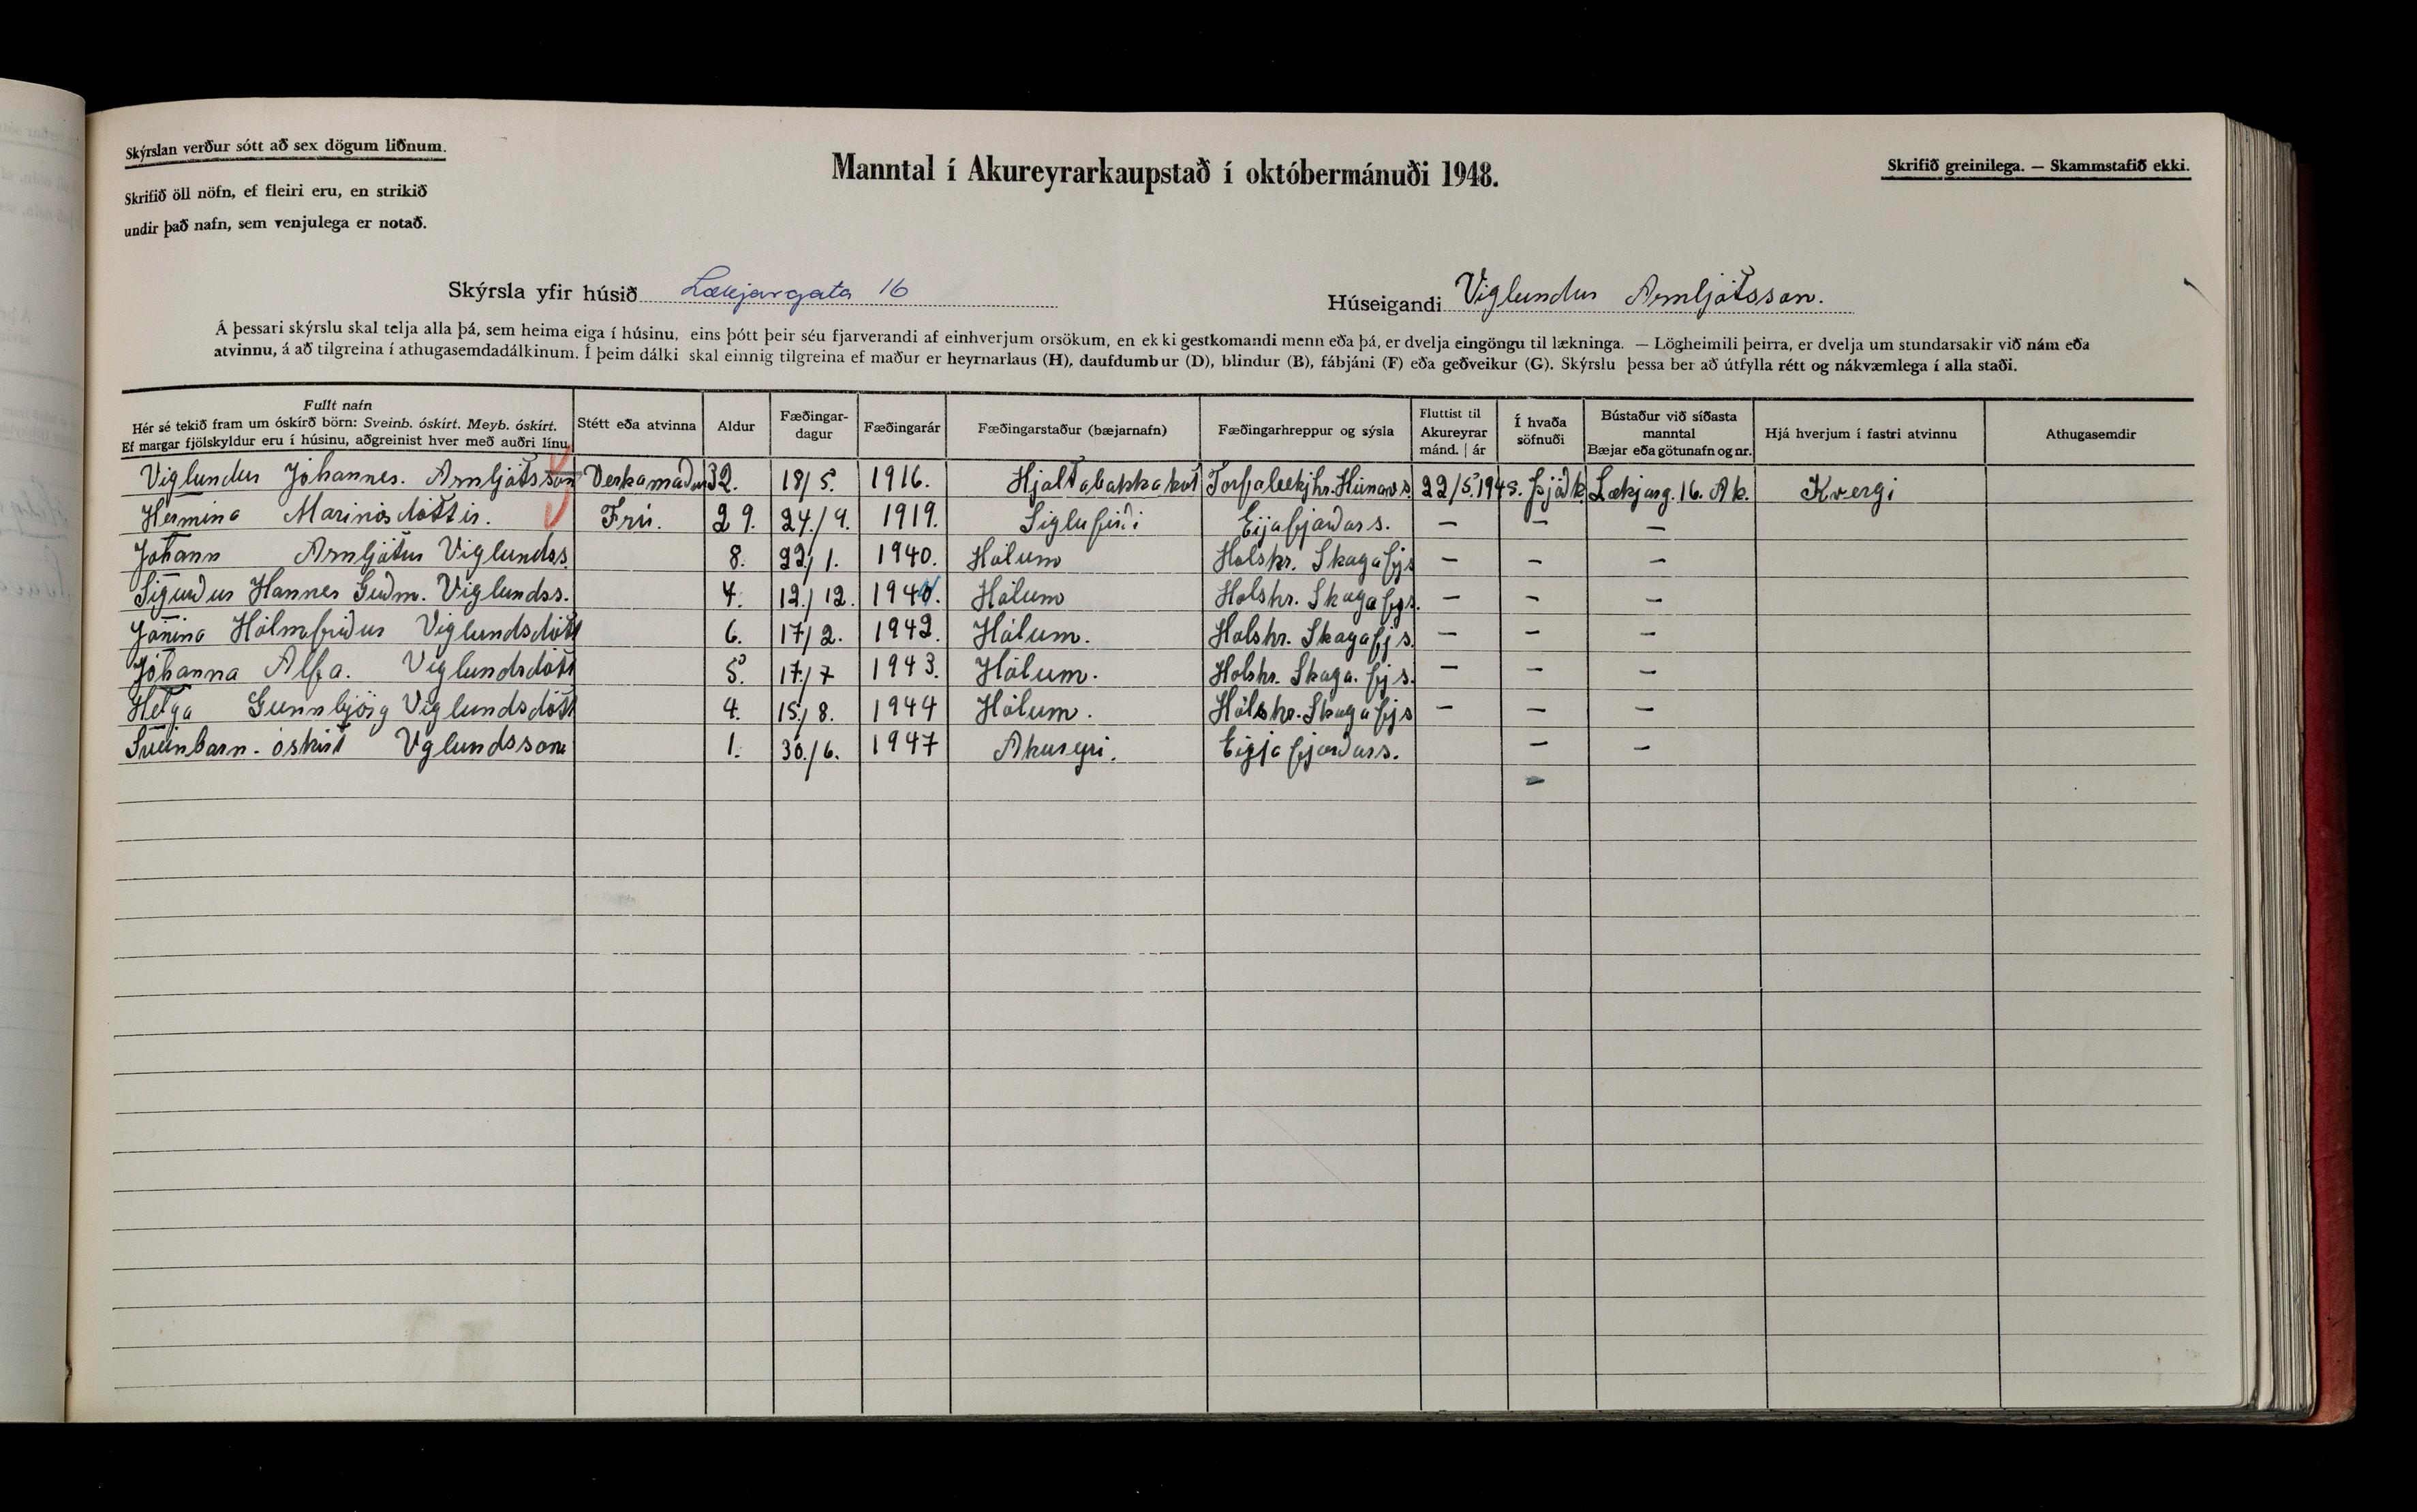 Skýrslan verður sótt að sex dögum liðnum.
Skrifið öll nöfn, ef fleiri eru, en strikið
undir það nafn, sem venjulega er notað.
Manntal í Akureyrarkaupstað í októbermánuði 1948.
Skrifið greinilega. — Skammstafið ekki.
Skýrsla yfir húsið Lækjargata 16
Húseigandi Viglundur Arnljótsson.
Á þessari skýrslu skal telja alla þá, sem heima eiga í húsinu, eins þótt þeir séu fjarverandi af einhverjum orsökum, en ekki gestkomandi menn eða þá, er dvelja eingöngu til lækninga. — Lögheimili þeirra, er dvelja um stundarsakir við nám eða
atvinnu, á að tilgreina í athugasemdadálkinum. Í þeim dálki skal einnig tilgreina ef maður er heyrnarlaus (H), daufdumbur (D), blindur (B), fábjáni (F) eða geðveikur (G). Skýrslu þessa ber að útfylla rétt og nákvæmlega í alla staði.
Fullt nafn
Hér sé tekið fram um óskírð börn: Sveinb. óskírt. Meyb. óskírt.
Ef margar fjölskyldur eru í húsinu, aðgreinist hver með auðri línu.
Stétt eða atvinna
Aldur
Fæðingar-
dagur
Fæðingarár
Fæðingarstaður (bæjarnafn)
Fæðingarhreppur og sýsla
Fluttist til
Akureyrar
mánd. | ár
Í hvaða
söfnuði
Bústaður við síðasta
manntal
Bæjar eða götunafn og nr.
Hjá hverjum í fastri atvinnu
Athugasemdir
Viglundur Jóhannes. Arnljótsson Verkamaður 32. 18/5. 1916. Hjaltabakkakot Torfalækjhr. Húnavs. 22/5. 1945. Þjóðk. Lækjarg. 16. Ak. Kvergi
Hermina Marinósdóttir. Frú. 29. 24./9. 1919. Siglufirði Eyjafjarðars. — — —
Jóhann Arnljótur Viglundss. 8. 22./1. 1940. Hólum Holshr. Skagafjs — — —
Sigurður Hannes Guðm. Viglundss. 7. 12./12. 1940. Hólum Holshr. Skagafjs. — — —
Jónina Hólmfriður Viglundsdótt 6. 17/2. 1942. Hólum. Holshr. Skagafjs. — — —
Jóhanna Alfa. Viglundsdótt 5. 17./7 1943. Hólum. Holshr. Skaga.fjs. — — —
Helga Gunnbjörg Viglundsdótt 4. 15./8. 1944 Hólum. Hólshr. Skagafjs — — —
Sveinbarn. óskírt Vglundsson 1. 30./6. 1947 Akureyri. Eyjafjarðars. — —
—